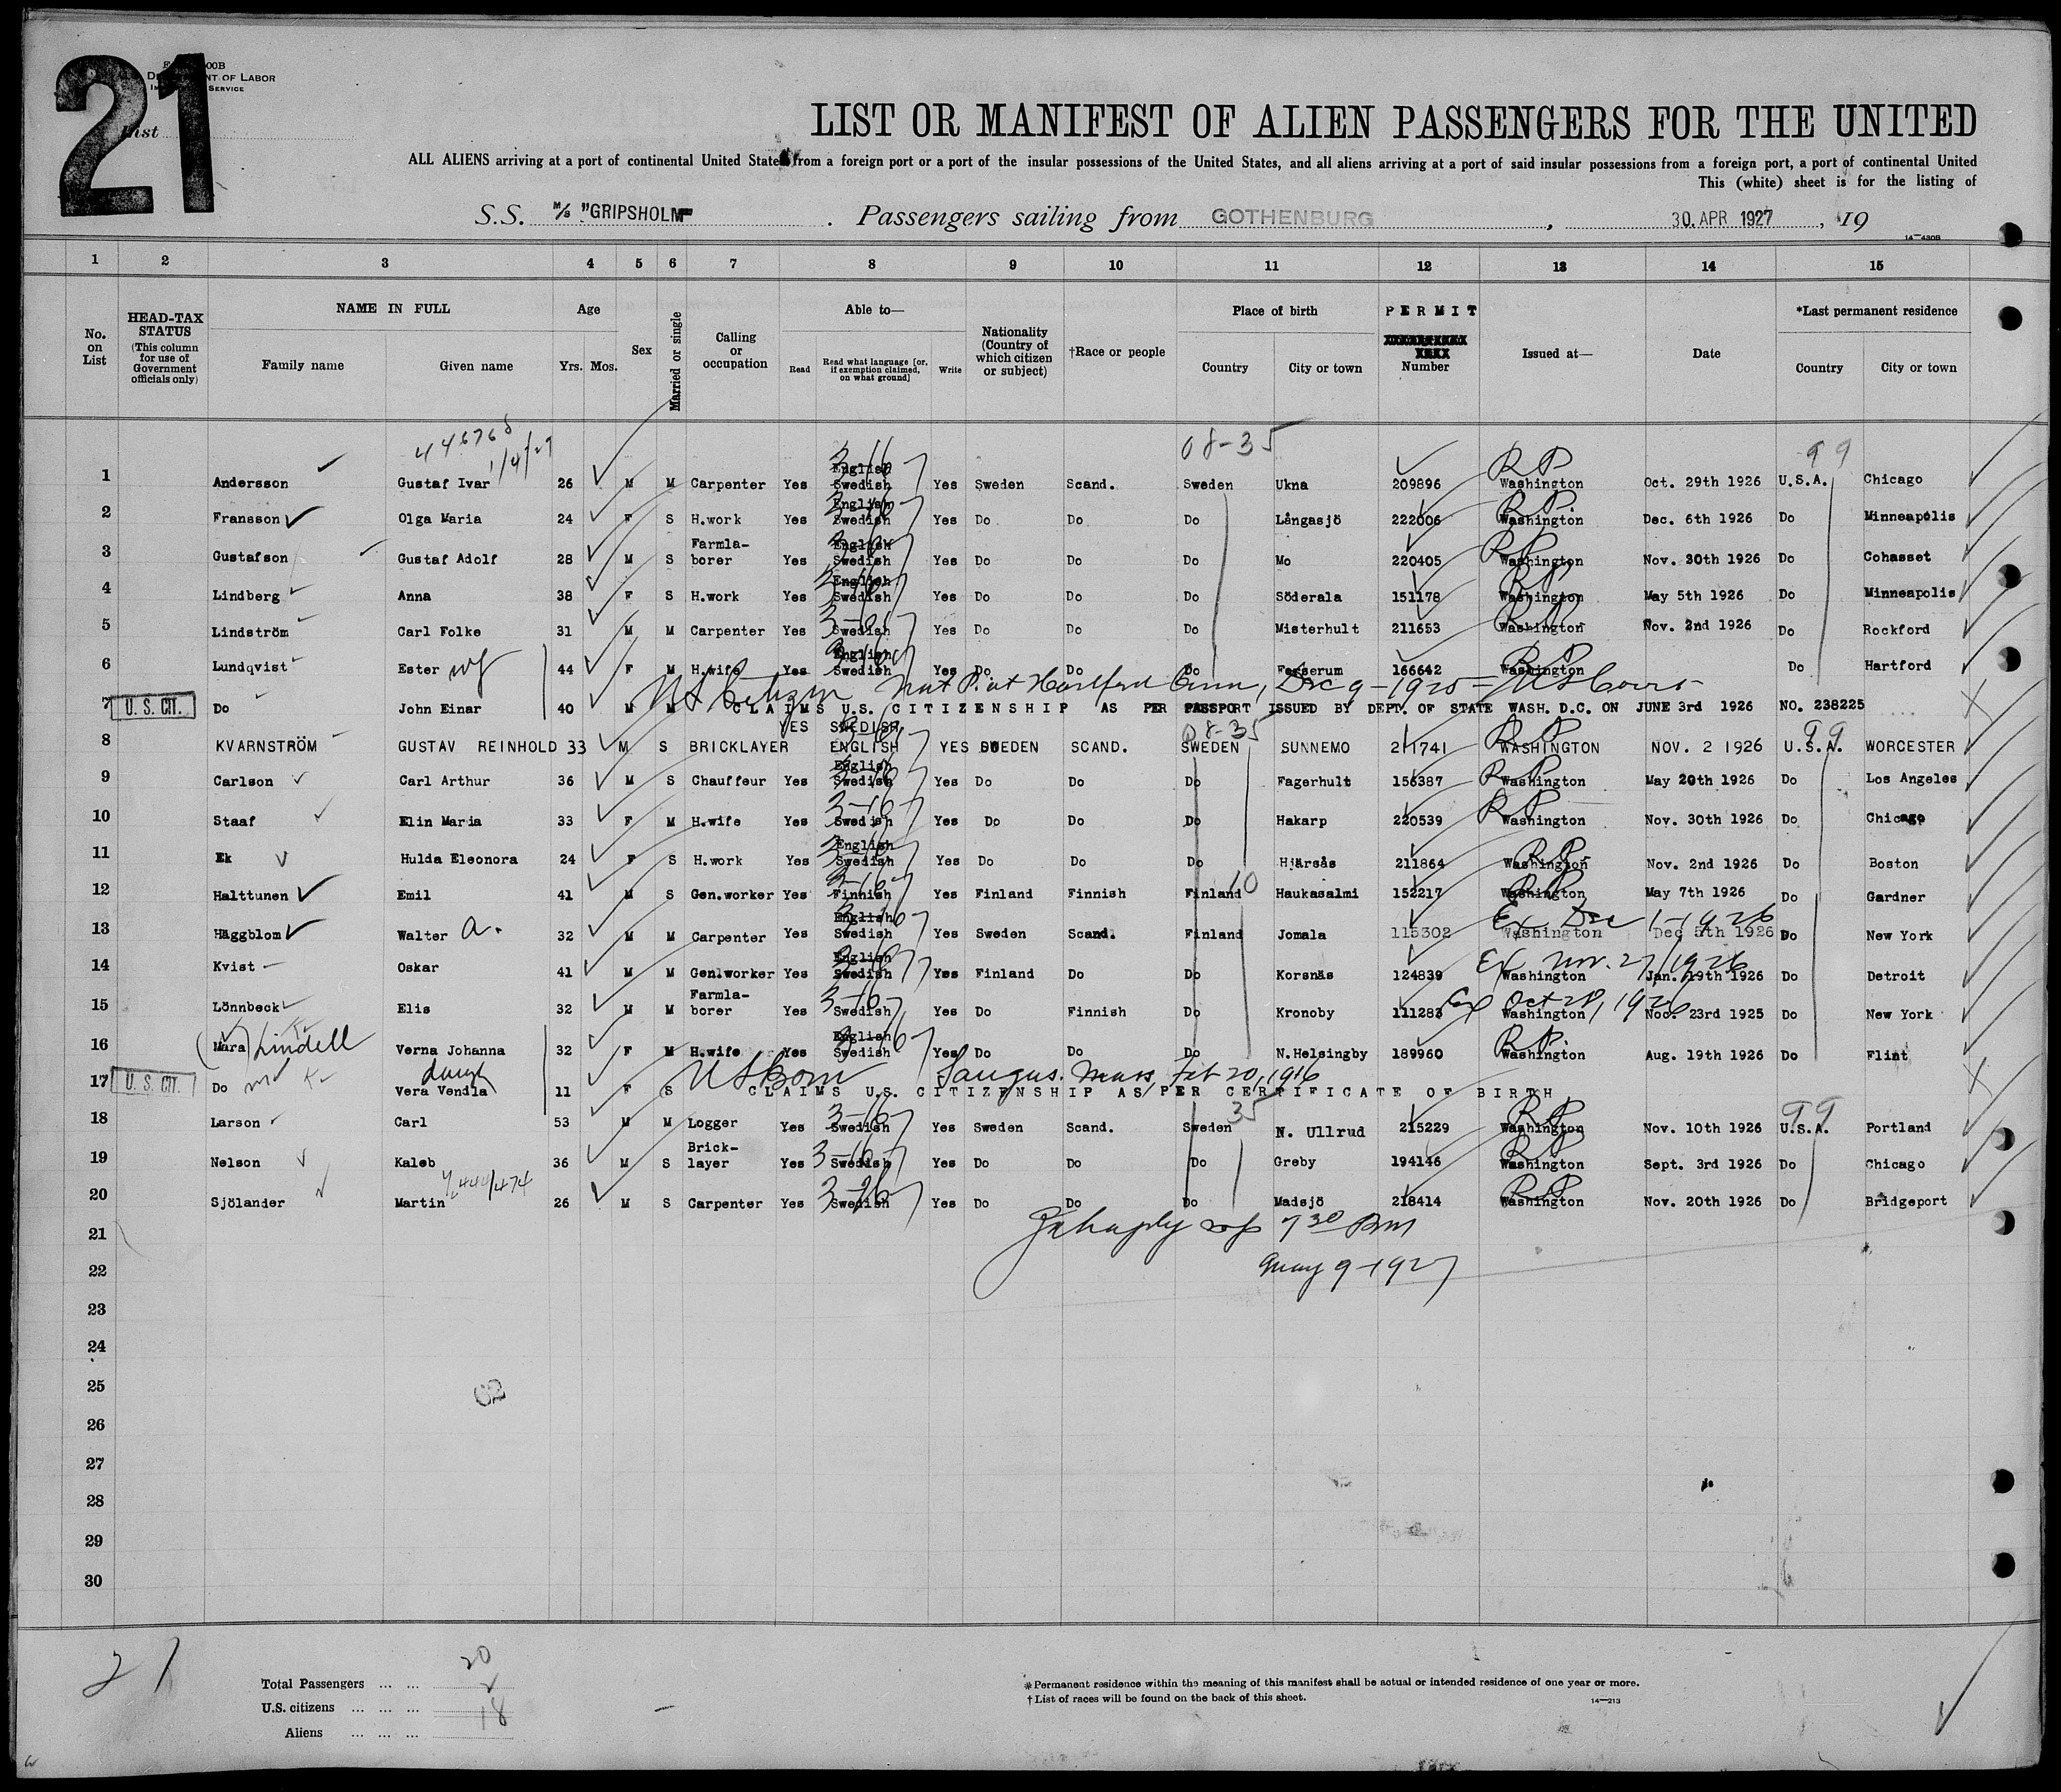 21
DEPARTMENT OF LABOR
SERVICE
List
LIST OR MANIFEST OF ALIEN PASSENGERS FOR THE UNITED
ALL ALIENS arriving at a port of continental United States from a foreign port or a port of the insular possessions of the United States, and all aliens arriving at a port of said insular possessions from a foreign port, a port of continental United
This (white) sheet is for the listing of
S.S. M/S "GRIPSHOLM" . Passengers sailing from GOTHENBURG , 30. APR 1927 , 19
14—430B
1 2 3 4 5 6 7 8 9 10 11 12 13 14 15
No. on List
HEAD-TAX STATUS (This column for use of Government officials only)
NAME IN FULL
Family name Given name
Age
Yrs. Mos.
Sex
Married or single
Calling or occupation
Able to—
Read Read what language [or, if exemption claimed, on what ground] Write
Nationality (Country of which citizen or subject)
†Race or people
Place of birth
Country City or town
PERMIT
Number
Issued at—
Date
*Last permanent residence
Country City or town
08-35 99
1 Andersson Gustaf Ivar 26 M M Carpenter Yes English Swedish Yes Sweden Scand. Sweden Ukna 209896 Washington Oct. 29th 1926 U.S.A. Chicago
2 Fransson Olga Maria 24 F S H.work Yes English Swedish Yes Do Do Do Långasjö 222006 Washington Dec. 6th 1926 Do Minneapolis
3 Gustafson Gustaf Adolf 28 M S Farmla-borer Yes English Swedish Yes Do Do Do Mo 220405 Washington Nov. 30th 1926 Do Cohasset
4 Lindberg Anna 38 F S H.work Yes English Swedish Yes Do Do Do Söderala 151178 Washington May 5th 1926 Do Minneapolis
5 Lindström Carl Folke 31 M M Carpenter Yes Swedish Yes Do Do Do Misterhult 211653 Washington Nov. 2nd 1926 Do Rockford
6 Lundqvist Ester wf 44 F M H.wife Yes English Swedish Yes Do Do Do Femserum 166642 Washington Do Hartford
US Citizen Nat P. at Hartford Conn, Dec 9-1925
7 U.S. CIT. Do John Einar 40 M M CLAIMS U.S. CITIZENSHIP AS PER PASSPORT ISSUED BY DEPT. OF STATE WASH. D.C. ON JUNE 3rd 1926 NO. 238225
08-35 99
8 KVARNSTRÖM GUSTAV REINHOLD 33 M S BRICKLAYER YES SWEDISH ENGLISH YES SWEDEN SCAND. SWEDEN SUNNEMO 211741 WASHINGTON NOV. 2 1926 U.S.A. WORCESTER
9 Carlson Carl Arthur 36 M S Chauffeur Yes English Swedish Yes Do Do Do Fagerhult 156387 Washington May 20th 1926 Do Los Angeles
10 Staaf Elin Maria 33 F M H.wife Yes Swedish Yes Do Do Do Hakarp 220539 Washington Nov. 30th 1926 Do Chicago
11 Ek Hulda Eleonora 24 F S H.work Yes English Swedish Yes Do Do Do Hjärsås 211864 Washington Nov. 2nd 1926 Do Boston
12 Halttunen Emil 41 M S Gen.worker Yes Finnish Yes Finland Finnish Finland 10 Haukasalmi 152217 Washington May 7th 1926 Do Gardner
Ex Dec 1-1926
13 Häggblom Walter A. 32 M M Carpenter Yes English Swedish Yes Sweden Scand. Finland Jomala 115302 Washington Dec 5th 1926 Do New York
Ex Nov. 27/1926
14 Kvist Oskar 41 M M Gen.worker Yes English Swedish Yes Finland Do Do Korsnäs 124839 Washington Jan. 19th 1926 Do Detroit
Oct 28, 1926
15 Lönnbeck Elis 32 M M Farmla-borer Yes Swedish Yes Do Finnish Do Kronoby 111283 Washington 23rd 1925 Do New York
16 (Mara) Lindell Verna Johanna 32 F M H.wife Yes English Swedish Yes Do Do Do N.Helsingby 189960 Washington Aug. 19th 1926 Do Flint
daugh US Born Saugus. Mass, Feb 20, 1916
17 U.S. CIT. Do Vera Vendla 11 F S CLAIMS U.S. CITIZENSHIP AS PER CERTIFICATE OF BIRTH
35 99
18 Larson Carl 53 M M Logger Yes Swedish Yes Sweden Scand. Sweden N. Ullrud 215229 Washington Nov. 10th 1926 U.S.A. Portland
19 Nelson Kaleb 36 M S Brick-layer Yes Swedish Yes Do Do Do Greby 194146 Washington Sept. 3rd 1926 Do Chicago
20 Sjölander Martin 26 M S Carpenter Yes Swedish Yes Do Do Do Madsjö 218414 Washington Nov. 20th 1926 Do Bridgeport
21
7 30 PM
22
May 9-1927
23
24
25
26
27
28
29
30
21
Total Passengers ... ... 20
U.S. citizens ... ... ... 2
Aliens ... ... ... 18
*Permanent residence within the meaning of this manifest shall be actual or intended residence of one year or more.
†List of races will be found on the back of this sheet.
14—213